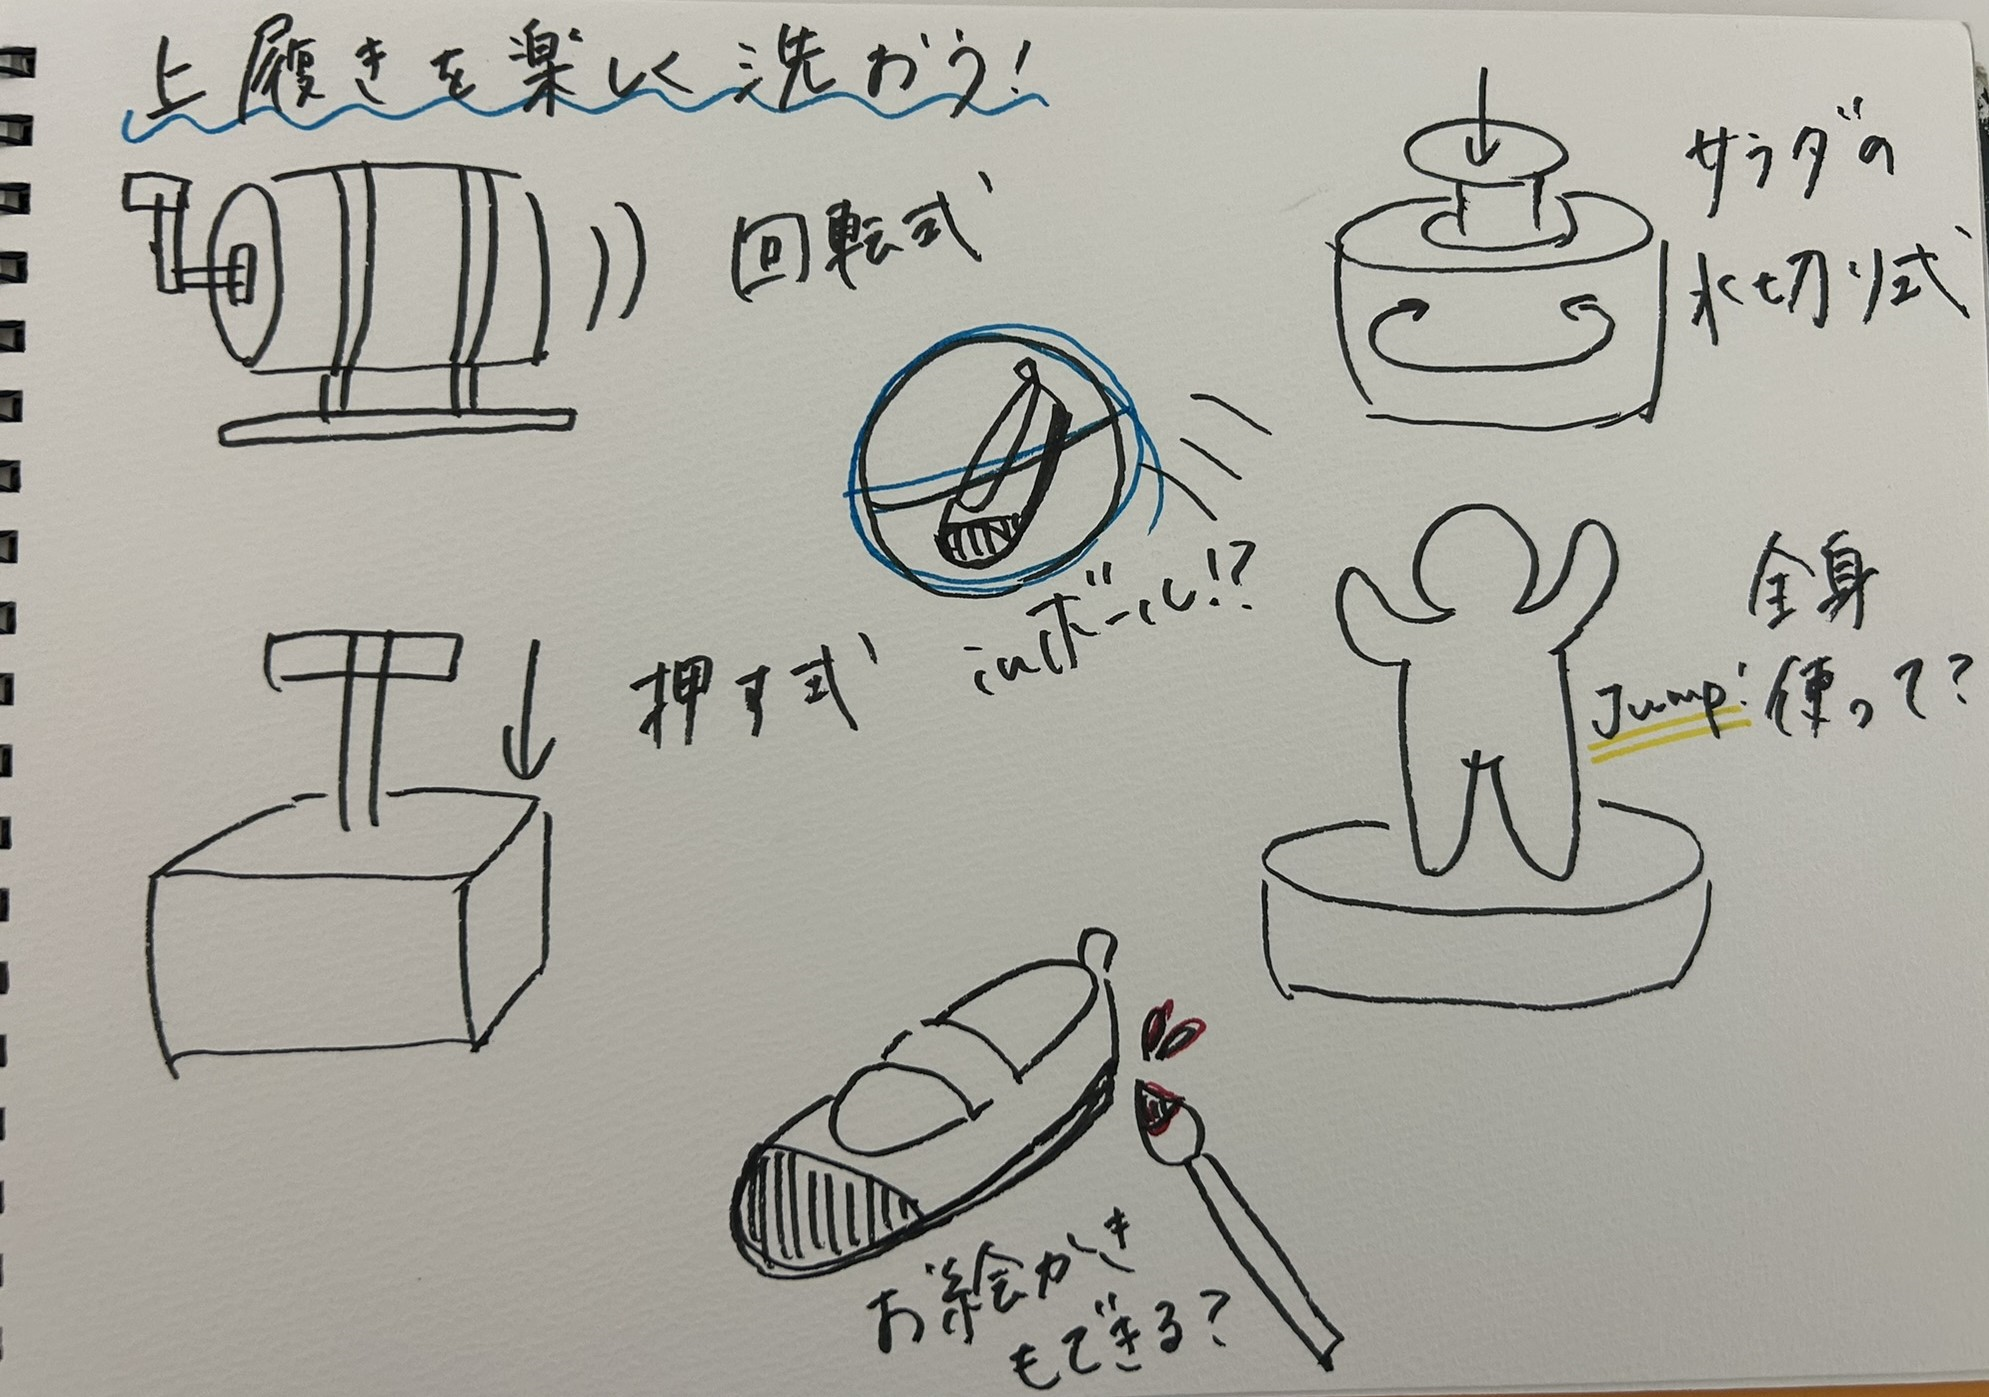 上履きを楽しく洗おう!
回転式
サラダの
水切り式
inボール!?
押す式
全身
使って?
Jump!
お絵かき
もできる?